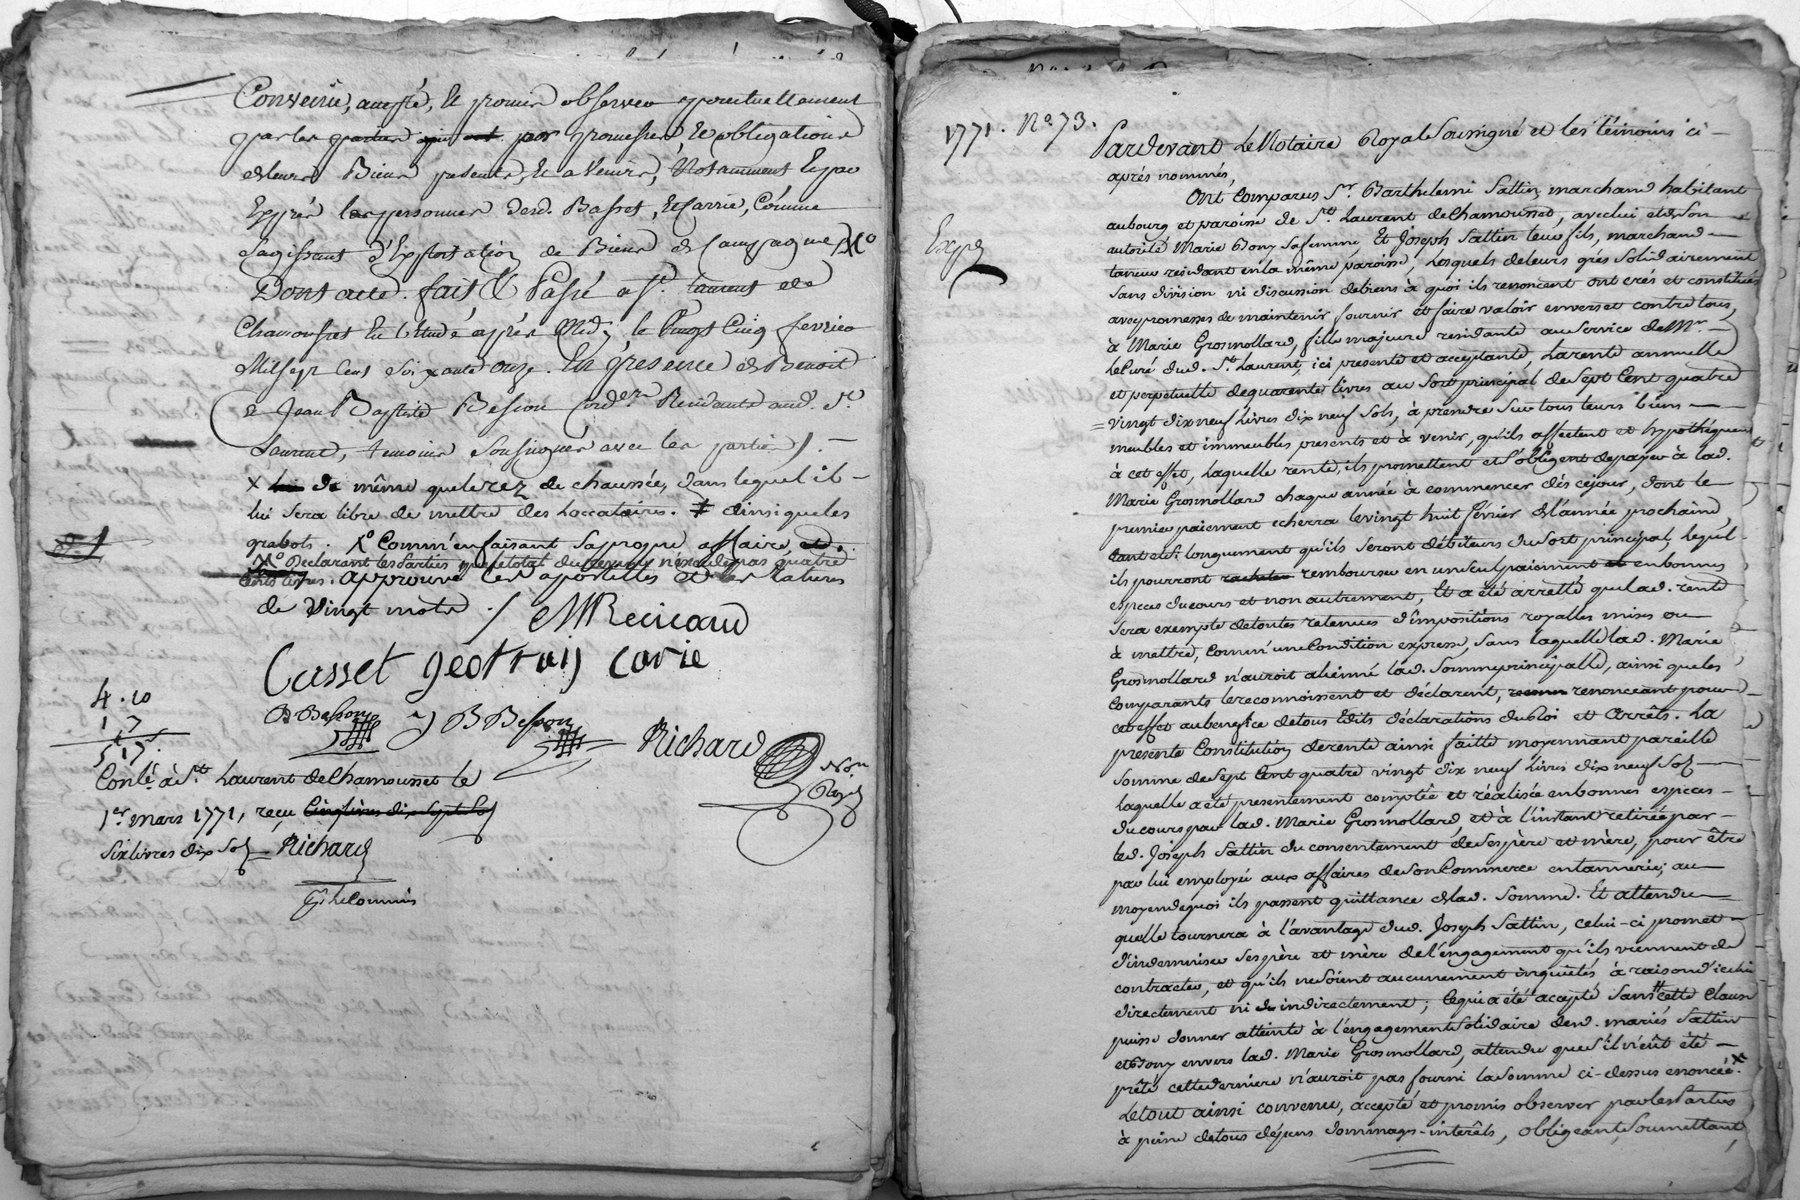 Convenu, accepté, et promis observer ponctuellement
par les parties par promesses et obligations
de leurs Biens presents, et a Venir, Notamment et par
Exprés les personnes desd. Basset, et Carrié, Comme
s'agissant d'Exploitation de Biens de Campagne X°
Dont acte. fait & Passé a St. Laurent de
Chamousset en l'Etude après Midy le Vingt Cinq fevrier
Mil sept Cent Soixante onze. En présence de Benoit
& Jean Baptiste Besson Cord.ers Residants aud. St.
Laurent, temoins soussignés avec les parties ./. —
X de même que le rez de chaussée, dans lequel il —
lui sera libre de mettre des Loccataires. # ainsi que les
grabots. X° Comm'en faisant sa propre affaire,
X° Declarant les Parties que le total du revenu n'éxcède pas quatre
cens livres. approuvé les apostilles et les ratures
de Vingt mots ./. MRecicard
Casset geofrai carie
B Besson J B Besson Richard
Not.re
Royal
4 . 10
1 7
5 17s.
Conlé. à St. Laurent de Chamousset le
1er. mars 1771, reçu Cinq livres dix sept sols
Six livres dix Sols Richard
1771. No. 73.
Exp.é
Pardevant Le Notaire Royal Soussigné et les témoins ci —
après nommés,
Ont Comparus Sr. Barthelemi Sattin, marchand habitant
au bourg et paroisse de St. Laurent de Chamousset, avec lui et de Son
autorité Marie Bony Sa femme, Et Joseph Sattin leur fils, marchand
tanneur residant en la même paroisse, Lesquels de leurs grés Solidairement
Sans division ni discussion de biens à quoi ils renoncent ont créé et constitué
avec promesses de maintenir fournir et faire valoir envers et contre tous,
à Marie Grosmollard, fille majeure residante au Service de Mr. —
le Curé dud. St. Laurent, ici presente et acceptante, La rente annuelle
et perpetuelle de quarante livres au Sort principal de Sept Cent quatre
vingt dix neuf Livres dix neuf Sols, à prendre Sur tous leurs biens —
meubles et immeubles presents et à venir, qu'ils affectent et hypothéquent
à cet effet, Laquelle rente, ils promettent et S'obligent de payer à lad.
Marie Grosmollard chaque année à commencer dés ce jour, dont le
premier paiement echerra le vingt huit février de l'année prochaine,
tant et Si longuement qu'ils Seront débiteurs du Sort principal, lequel
ils pourront rembourser en un Seul paiement en bonnes
especes du cours et non autrement, Et a été arretté que lad. rente
Sera exempte de toutes retenues d'impositions royalles mises ou
à mettre, Comm'une Condition expresse, Sans laquelle lad. Marie
Grosmollard n'auroit aliené lad. Somme principalle, ainsi que les
Comparants le reconnoissent et déclarent, renonceant pour
cet effet au benefice de tous Edits déclarations du Roi et Arrêts. La
presente Constitution de rente ainsi faitte moyennant pareille
Somme de Sept Cent quatre vingt dix neuf Livres dix neuf Sols —
Laquelle a été presentement comptée et réalisée en bonnes especes
du cours par lad. Marie Grosmollard et à l'instant retirée par
led. Joseph Sattin du consentement de Ses père et mère, pour être
par lui employée aux affaires de Son Commerce en tannerie, au
moyen de quoi ils passent quittance de lad. Somme. Et attendu
quelle tournera à l'avantage dud. Joseph Sattin, celui-ci promet
d'indemniser Ses père et mère de l'engagement qu'ils viennent de
contracter, et qu'ils ne Soient aucunement inquietés à raison d'icelui
directement ni indirectement ; Ce qui a été accepté Sans # cette clause
puisse donner atteinte à l'engagement Solidaire desd. mariés Sattin
et Bony envers lad. Marie Grosmollard, attendu que S'il n'eût été —
prêté cette derniere n'auroit pas fourni la Somme ci-dessus enoncée. X
Le tout ainsi convenu, accepté et promis observer par les Parties
à peine de tous dépens dommages-interêts, obligeant, Soumettant,